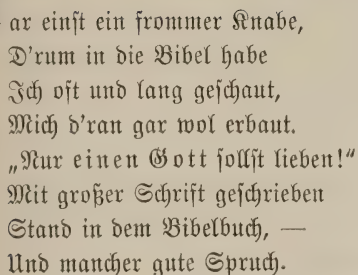 ar einst ein frommer Knabe,
D'rum in die Bibel habe
Ich oft und lang geschaut,
Mich d'ran gar wol erbaut.
„Nur einen Gott sollst lieben!“
Mit großer Schrift geschrieben
Stand in dem Bibelbuch, —
Und mancher gute Spruch.